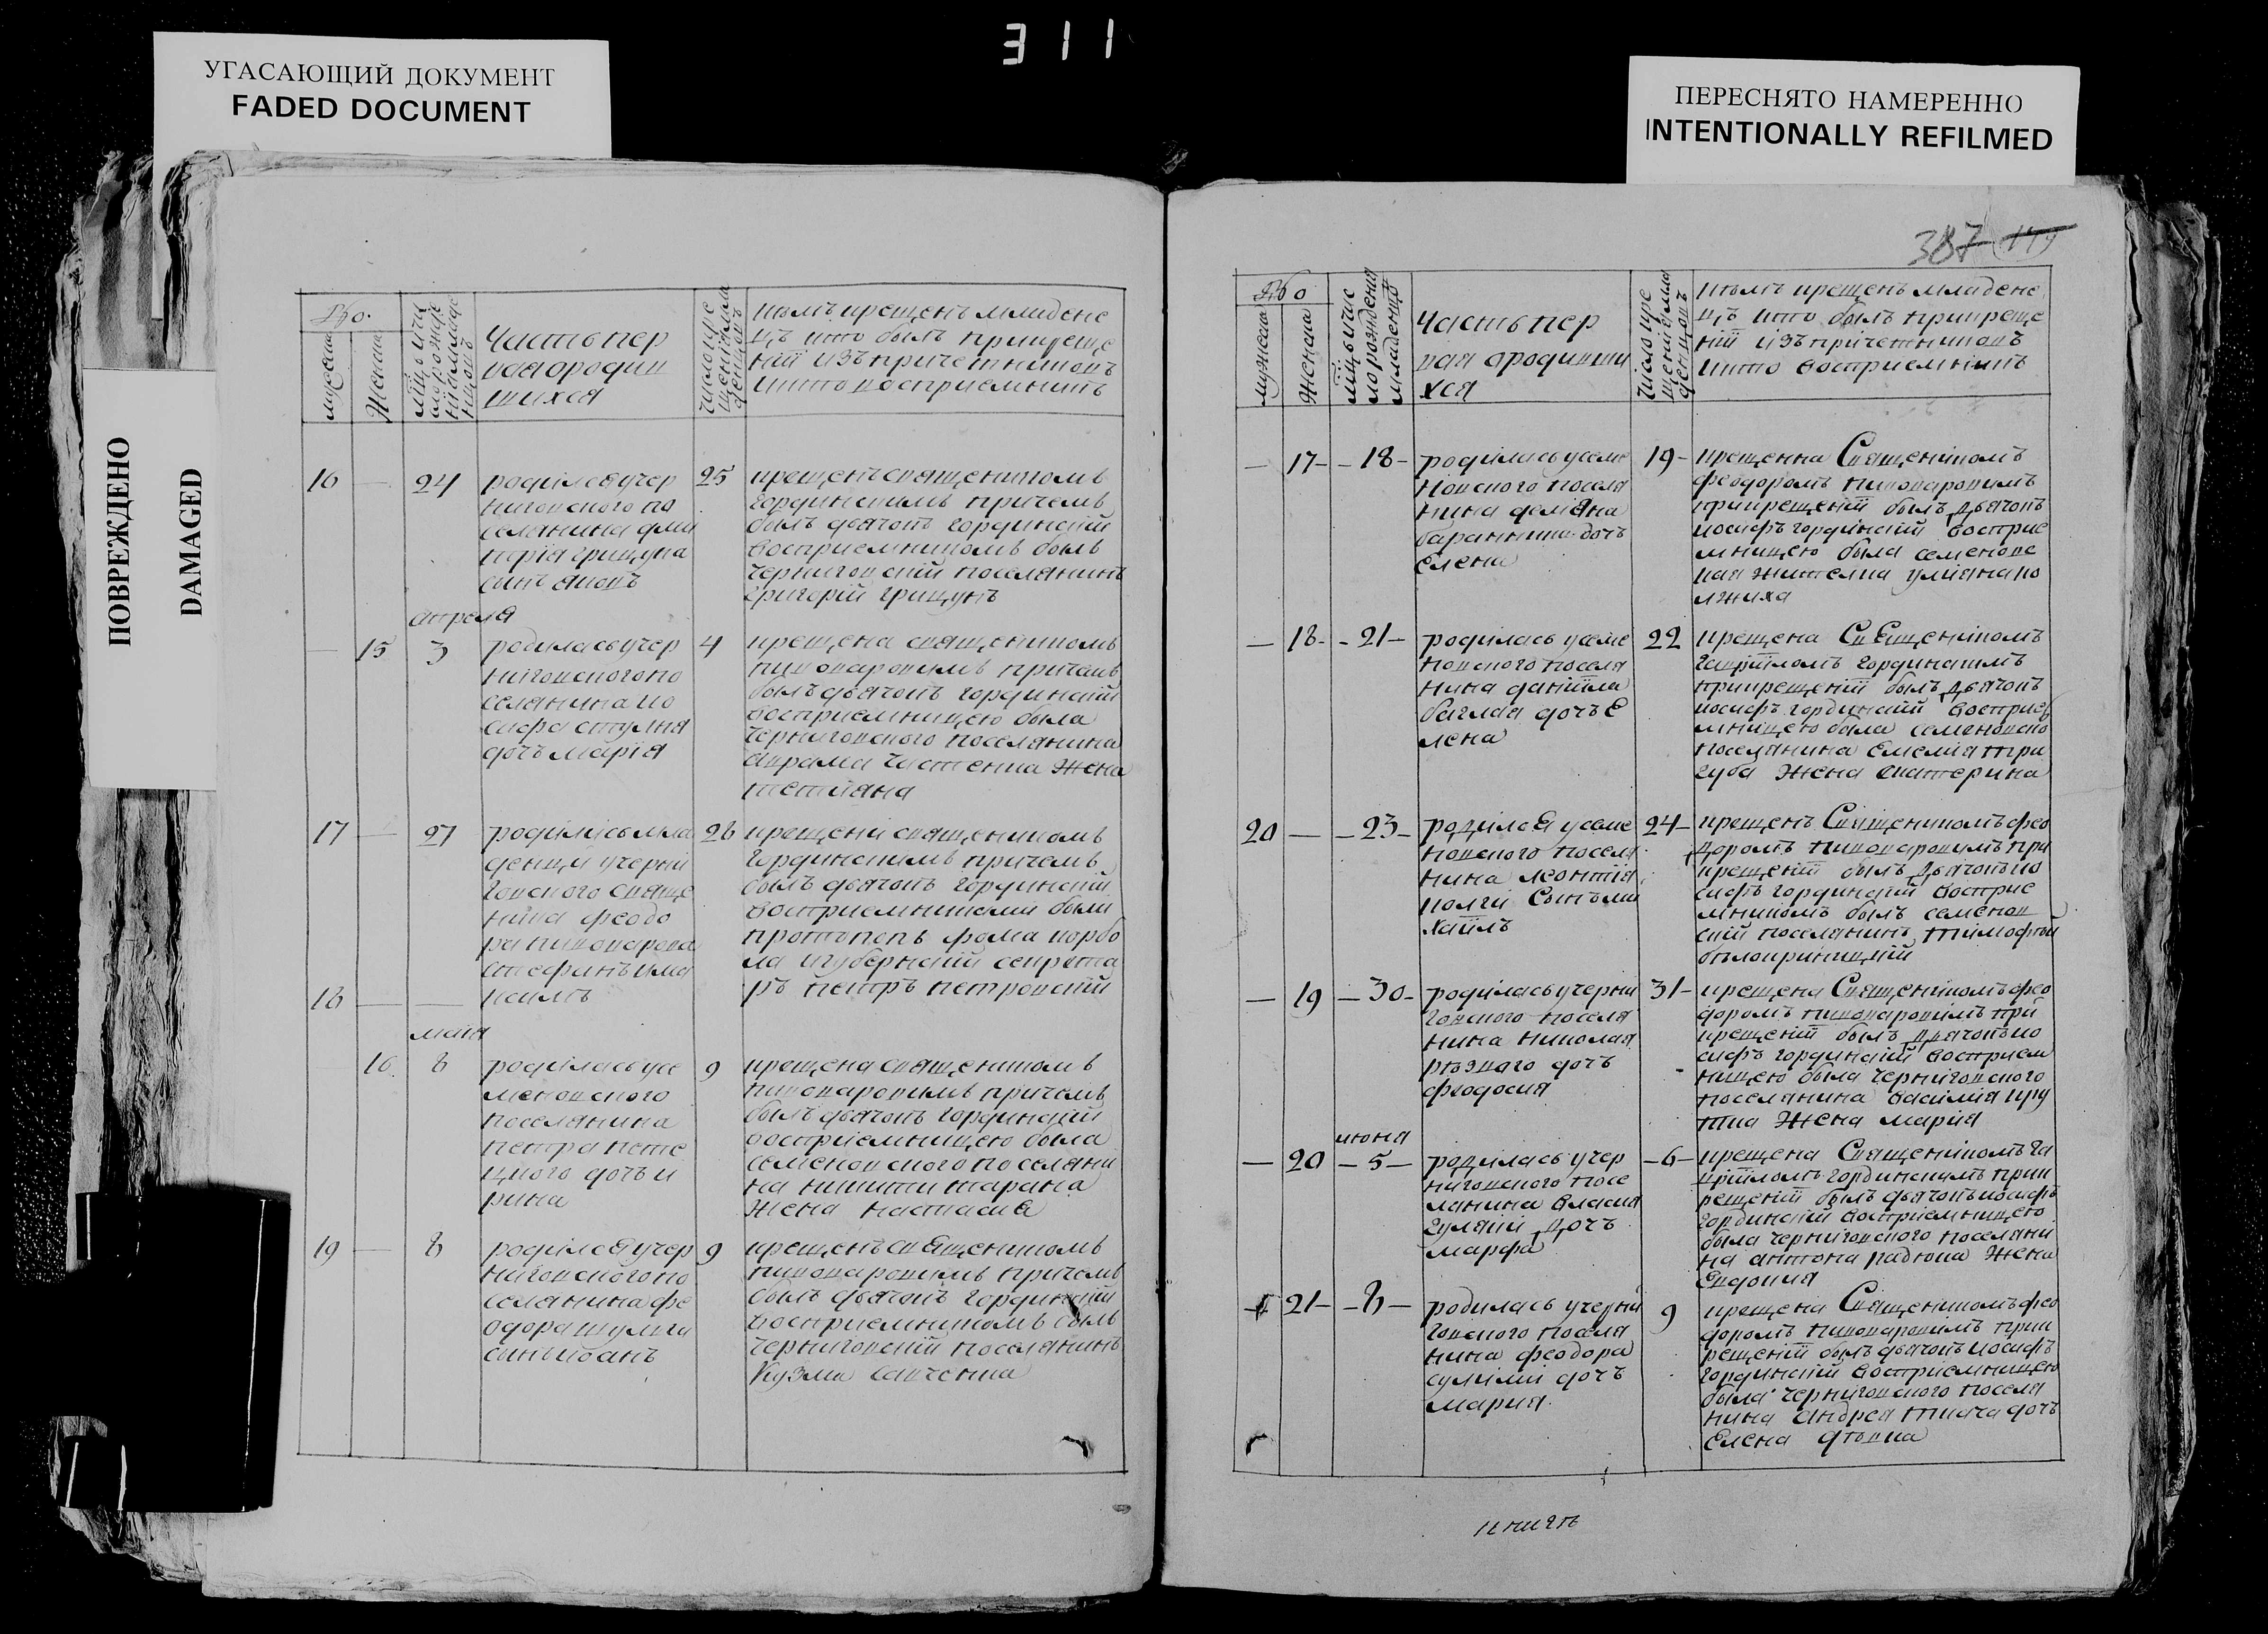 311
УГАСАЮЩИЙ ДОКУМЕНТ
FADED DOCUMENT
ПЕРЕСНЯТО НАМЕРЕННО
INTENTIONALLY REFILMED
ПОВРЕЖДЕНО
DAMAGED
387
№о.
мужеска
Женска
Часть пер
вая о родив
шихся
кѣмъ крещенъ младене
цъ кто былъ при креще
нїи изъ причетниковъ
и кто восприемникъ
16 — 24
родился у чер
ниговского по
селянина дми
трїя грицука
сынъ яковъ
25
крещенъ священикомъ
гординскимъ причемъ
былъ дьячокъ гординскїй
восприемникомъ былъ
черниговскїй поселянинъ
григорїй грицукъ
апреля
— 15 3
родилась у чер
ниговского по
селянина ио
сифа ступка
дочь марїя
4
крещена священикомъ
пивоваровимъ причемъ
былъ дьячокъ гординскїй
восприемницею была
черниговского поселянина
аврама Жена
17 — 27
родились мла
денци у черни
говского свяще
ника феодо
ра пивоварова
стефанъ и ма
ксимъ
18 — —
28
крещени священикомъ
гординскимъ причемъ
былъ дьячокъ гординскїй
восприемниками были
протопопъ фома корбо
ла и губернскїй секрета
ръ петръ петровскїй
маия
16 8
родилась у се
меновского
поселянина
петра
дочь и
рина
9
крещена священикомъ
пивоваровимъ причемъ
былъ дьячокъ гординскїй
восприемницею была
семеновского поселяни
на никити тарана
жена настасия
19 — 8
родился у чер
ниговского по
селянина фе
одора шулги
синъ иоанъ
9
крещенъ священикомъ
пивоваровимъ причемъ
былъ дьячокъ гординскїй
восприемникомъ былъ
черниговскїй поселянинъ
Кузма савченка
№о
мужеска
Женска
мцъ и чис
ло рождения
младенцовъ
Часть пер
вая о родивши
хся
Число кре
щения мла
денцовъ
кѣмъ крещенъ младене
цъ кто былъ при креще
нїи изъ причетниковъ
и кто восприемникъ
— 17 — 18 —
родилась у семе
новского поселя
нина демяна
баранника дочь
Елена
19 —
крещенна Священикомъ
феодоромъ пивоваровимъ
при крещенїи былъ дьячокъ
иосифъ гординскїй восприе
мницею была семеновс
кая жителка улияна ко
лжиха
— 18 — 21 —
родилась у семе
новского поселя
нина данїила
баглая дочь Е
лена
22
крещена Священикомъ
гаврїиломъ гординскимъ
при крещенїи былъ дьячокъ
иосифъ гординскїй восприе
мницею была семеновско
поселянина Емелия три
губа Жена екатерина
20 — — 23 —
родился у семе
новского поселя
нина леонтїя
колги Сынъ ми
хаилъ
24 —
крещенъ Священикомъ фео
доромъ пивоваровимъ при
крещенїи былъ дьячокъ ио
сифъ гординскїй восприе
мникомъ былъ семенов
скїй поселянинъ тимофѣй
бѣлокриницкїй
— 19 — 30 —
родилась у черни
говского поселя
нина николая
рѣзцого дочь
феодосия
31 —
крещена Священикомъ фео
доромъ пивоваровимъ при
крещенїи былъ дьячокъ ио
сифъ гординскїй восприем
ницею была черниговского
поселянина василия кру
тка Жена мария
июня
— 20 — 5 —
родилась у чер
ниговского посе
лянина власия
гуляки дочь
марфа
— 6 —
крещена Священикомъ га
врїиломъ гординскимъ при к
рещенїи былъ дьячокъ иосифъ
гординскїй восприемницею
была черниговского поселяни
на антона радкова Жена
Евдокия
21 — 8 —
родилась у черни
говского поселя
нина феодора
сулими дочь
мария
9
крещена Священикомъ фео
доромъ пивоваровимъ при к
рещенїи былъ дьячокъ иосифъ
гординскїй восприемницею
была черниговского поселя
нина андрея ткача дочь
Елена дѣвка